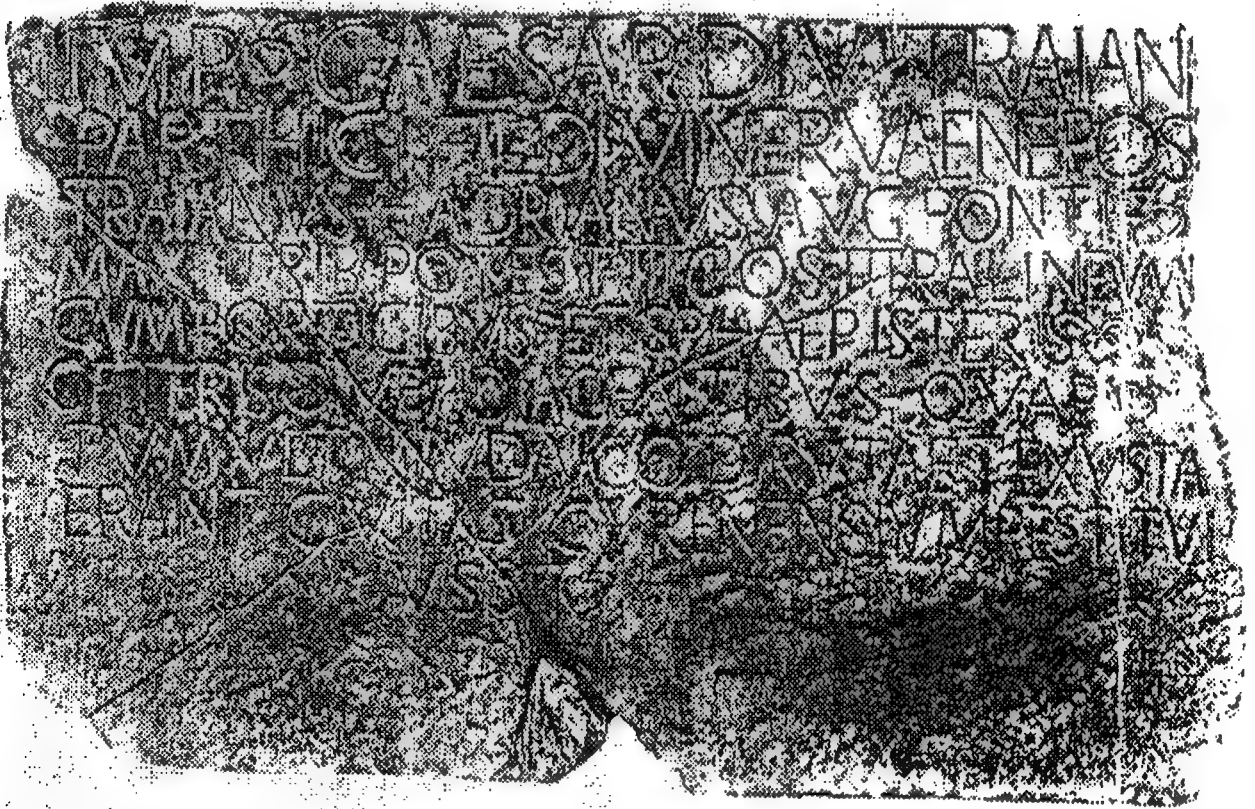 IMP CAESAR DIVI TRAIANI
PARTHICI F DIVI NERVAE NEPOS
TRAIANVS HADRIANVS AVG PONTIF
MAX TRIB POTEST III COS III BALINEVM
CVM PORTICIBVS ET SPHAERISTERIS
CETERISQVE ADIACENTIBVS QVAE
TVMVLTV IVDAICO DIRVTA ET EXVSTA
ERANT CIVITATI CYRENENSIVM RESTITVI